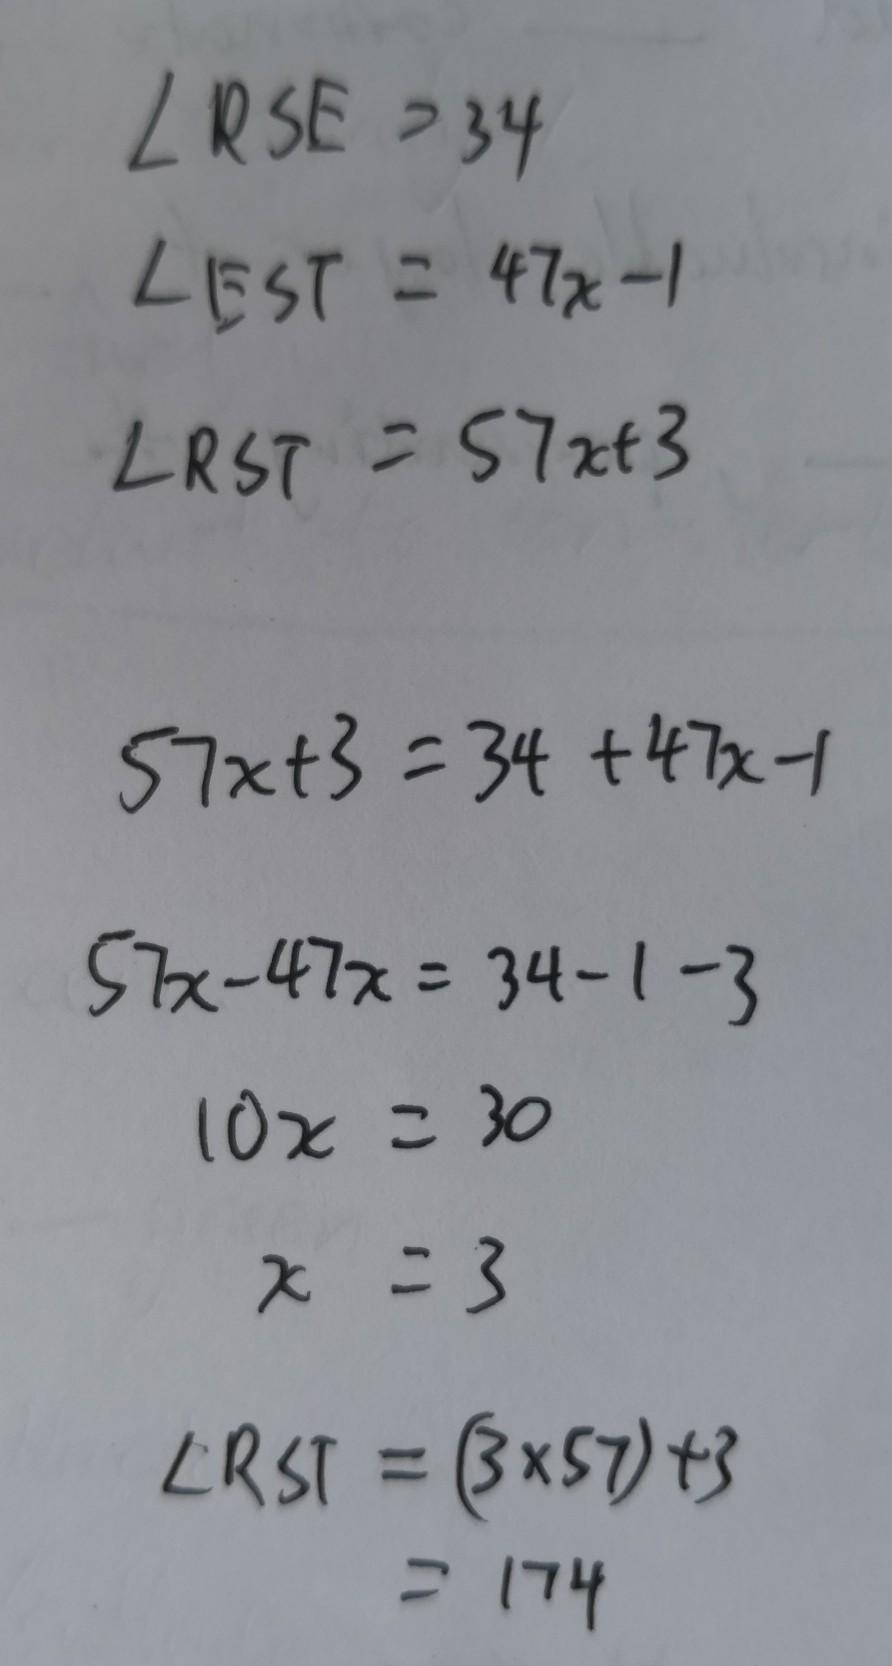 ∠RSE = 34
∠EST = 47x-1
∠RST = 57x+3
57x+3 = 34 + 47x-1
57x-47x = 34-1-3
10x = 30
x = 3
∠RST = (3×57)+3
= 174